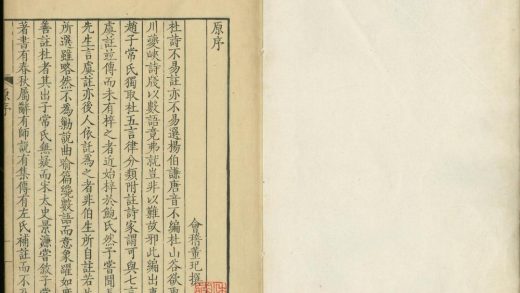 原序
會稽董玘撰
杜詩不易註亦不易選楊伯謙唐音不編杜山谷欲取
川夔峽詩牋以數語竟弗就豈非以難故邪此編出
趙子常氏獨取杜五言律分類附註詩家謂可與七言
虞註並傳而未有梓之者近始梓於鮑氏然予嘗聞
先生言虞註亦後人依託為之者非伯生所自註若
所選雖略然不為勦說曲喻篇纔數語而意象躍如
善註杜者其出子常氏無疑而宋太史景濂嘗敘子常
著書有春秋屬辭有師說有集傳有左氏補註而不
原序